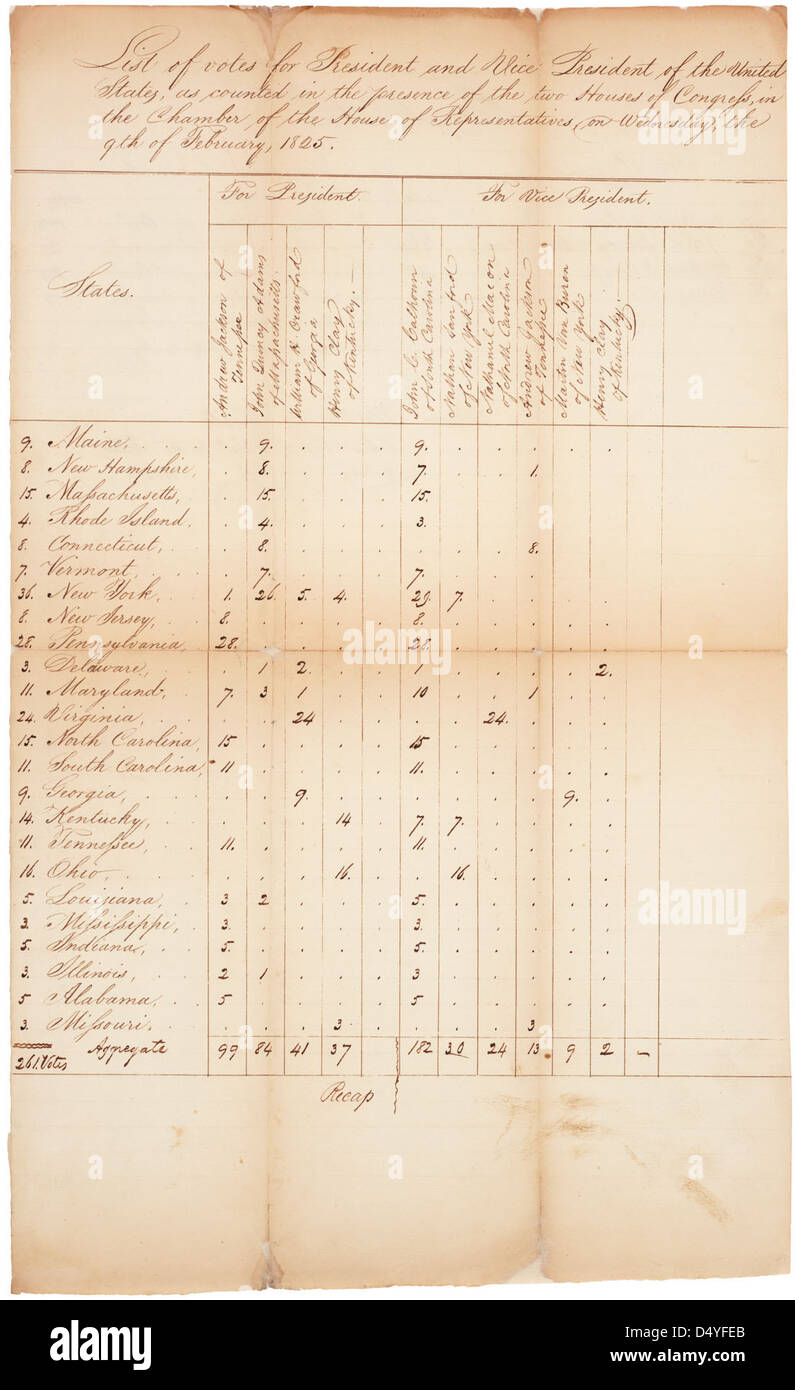 List of votes for President and Vice President of the United
States, as counted in the presence of the two Houses of Congress, in
the Chamber of the House of Representatives, on Wednesday, the
9th of February, 1825.
For President. For Vice President.
States.
Andrew Jackson of
Tennessee
John Quincy Adams
of Massachusetts.
William H. Crawford
of Georgia
Henry Clay
of Kentucky.
John C. Calhoun
of South Carolina
Nathan Sanford
of New York
Nathaniel Macon
of North Carolina
Andrew Jackson
of Tennessee
Martin Van Buren
of New York
Henry Clay
of Kentucky.
9. Maine, . 9. . . . 9. . . . . .
8. New Hampshire, . 8. . . . 7. . . 1. . .
15. Massachusetts, . 15. . . . 15. . . . . .
4. Rhode Island. . 4. . . . 3. . . . . .
8. Connecticut, . 8. . . . . . . 8. . .
7. Vermont, . 7. . . . 7. . . . . .
36. New York, 1. 26. 5. 4. . 29. 7. . . . .
8. New Jersey, 8. . . . . 8. . . . . .
28. Pennsylvania, 28. . . . . 28. . . . . .
3. Delaware, . 1 2. . . 1 . . . . 2.
11. Maryland, 7. 3 1 . . 10 . . 1 . .
24. Virginia, . . 24 . . . . 24. . . .
15. North Carolina, 15 . . . . 15. . . . . .
11. South Carolina, 11 . . . . 11. . . . . .
9. Georgia, . . 9. . . . . . . 9. .
14. Kentucky, . . . 14 . 7. 7. . . . .
11. Tennessee, 11. . . . . 11. . . . . .
16. Ohio, . . . 16. . . 16. . . . .
5. Louisiana, 3 2 . . . 5. . . . . .
3. Mississippi, 3. . . . . 3. . . . . .
5. Indiana, 5. . . . . 5. . . . . .
3. Illinois, 2 1 . . . 3 . . . . .
5 Alabama, 5 . . . . 5 . . . . .
3. Missouri. . . . 3 . . . . 3 . .
261. Votes Aggregate 99 84 41 37 182 30 24 13 9 2 –
Recap
alamy
alamy
alamy
alamy
a
a
a
a
a
a
alamy
Image ID: D4YFEB
www.alamy.com